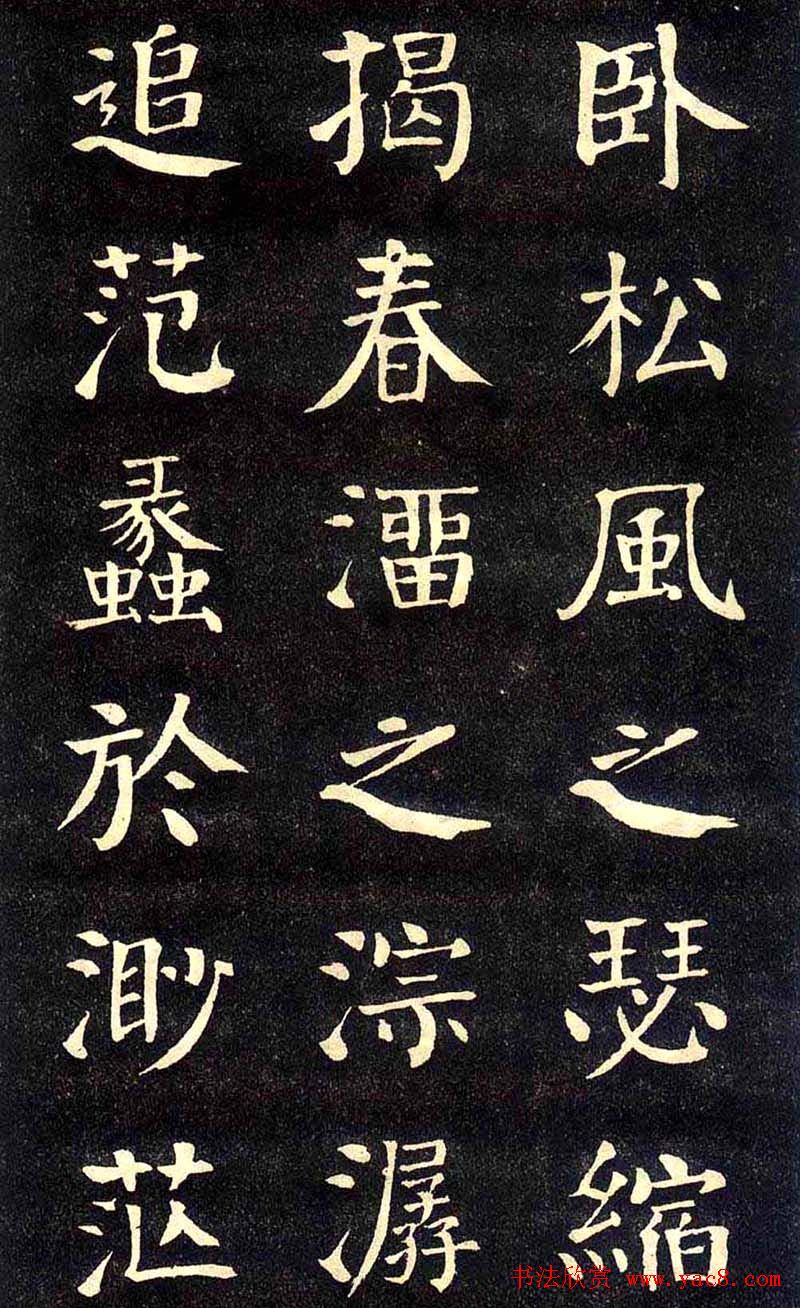 卧松風之瑟縮
揭春溜之淙潺
追范蠡於渺茫
书法欣赏 www.yac8.com